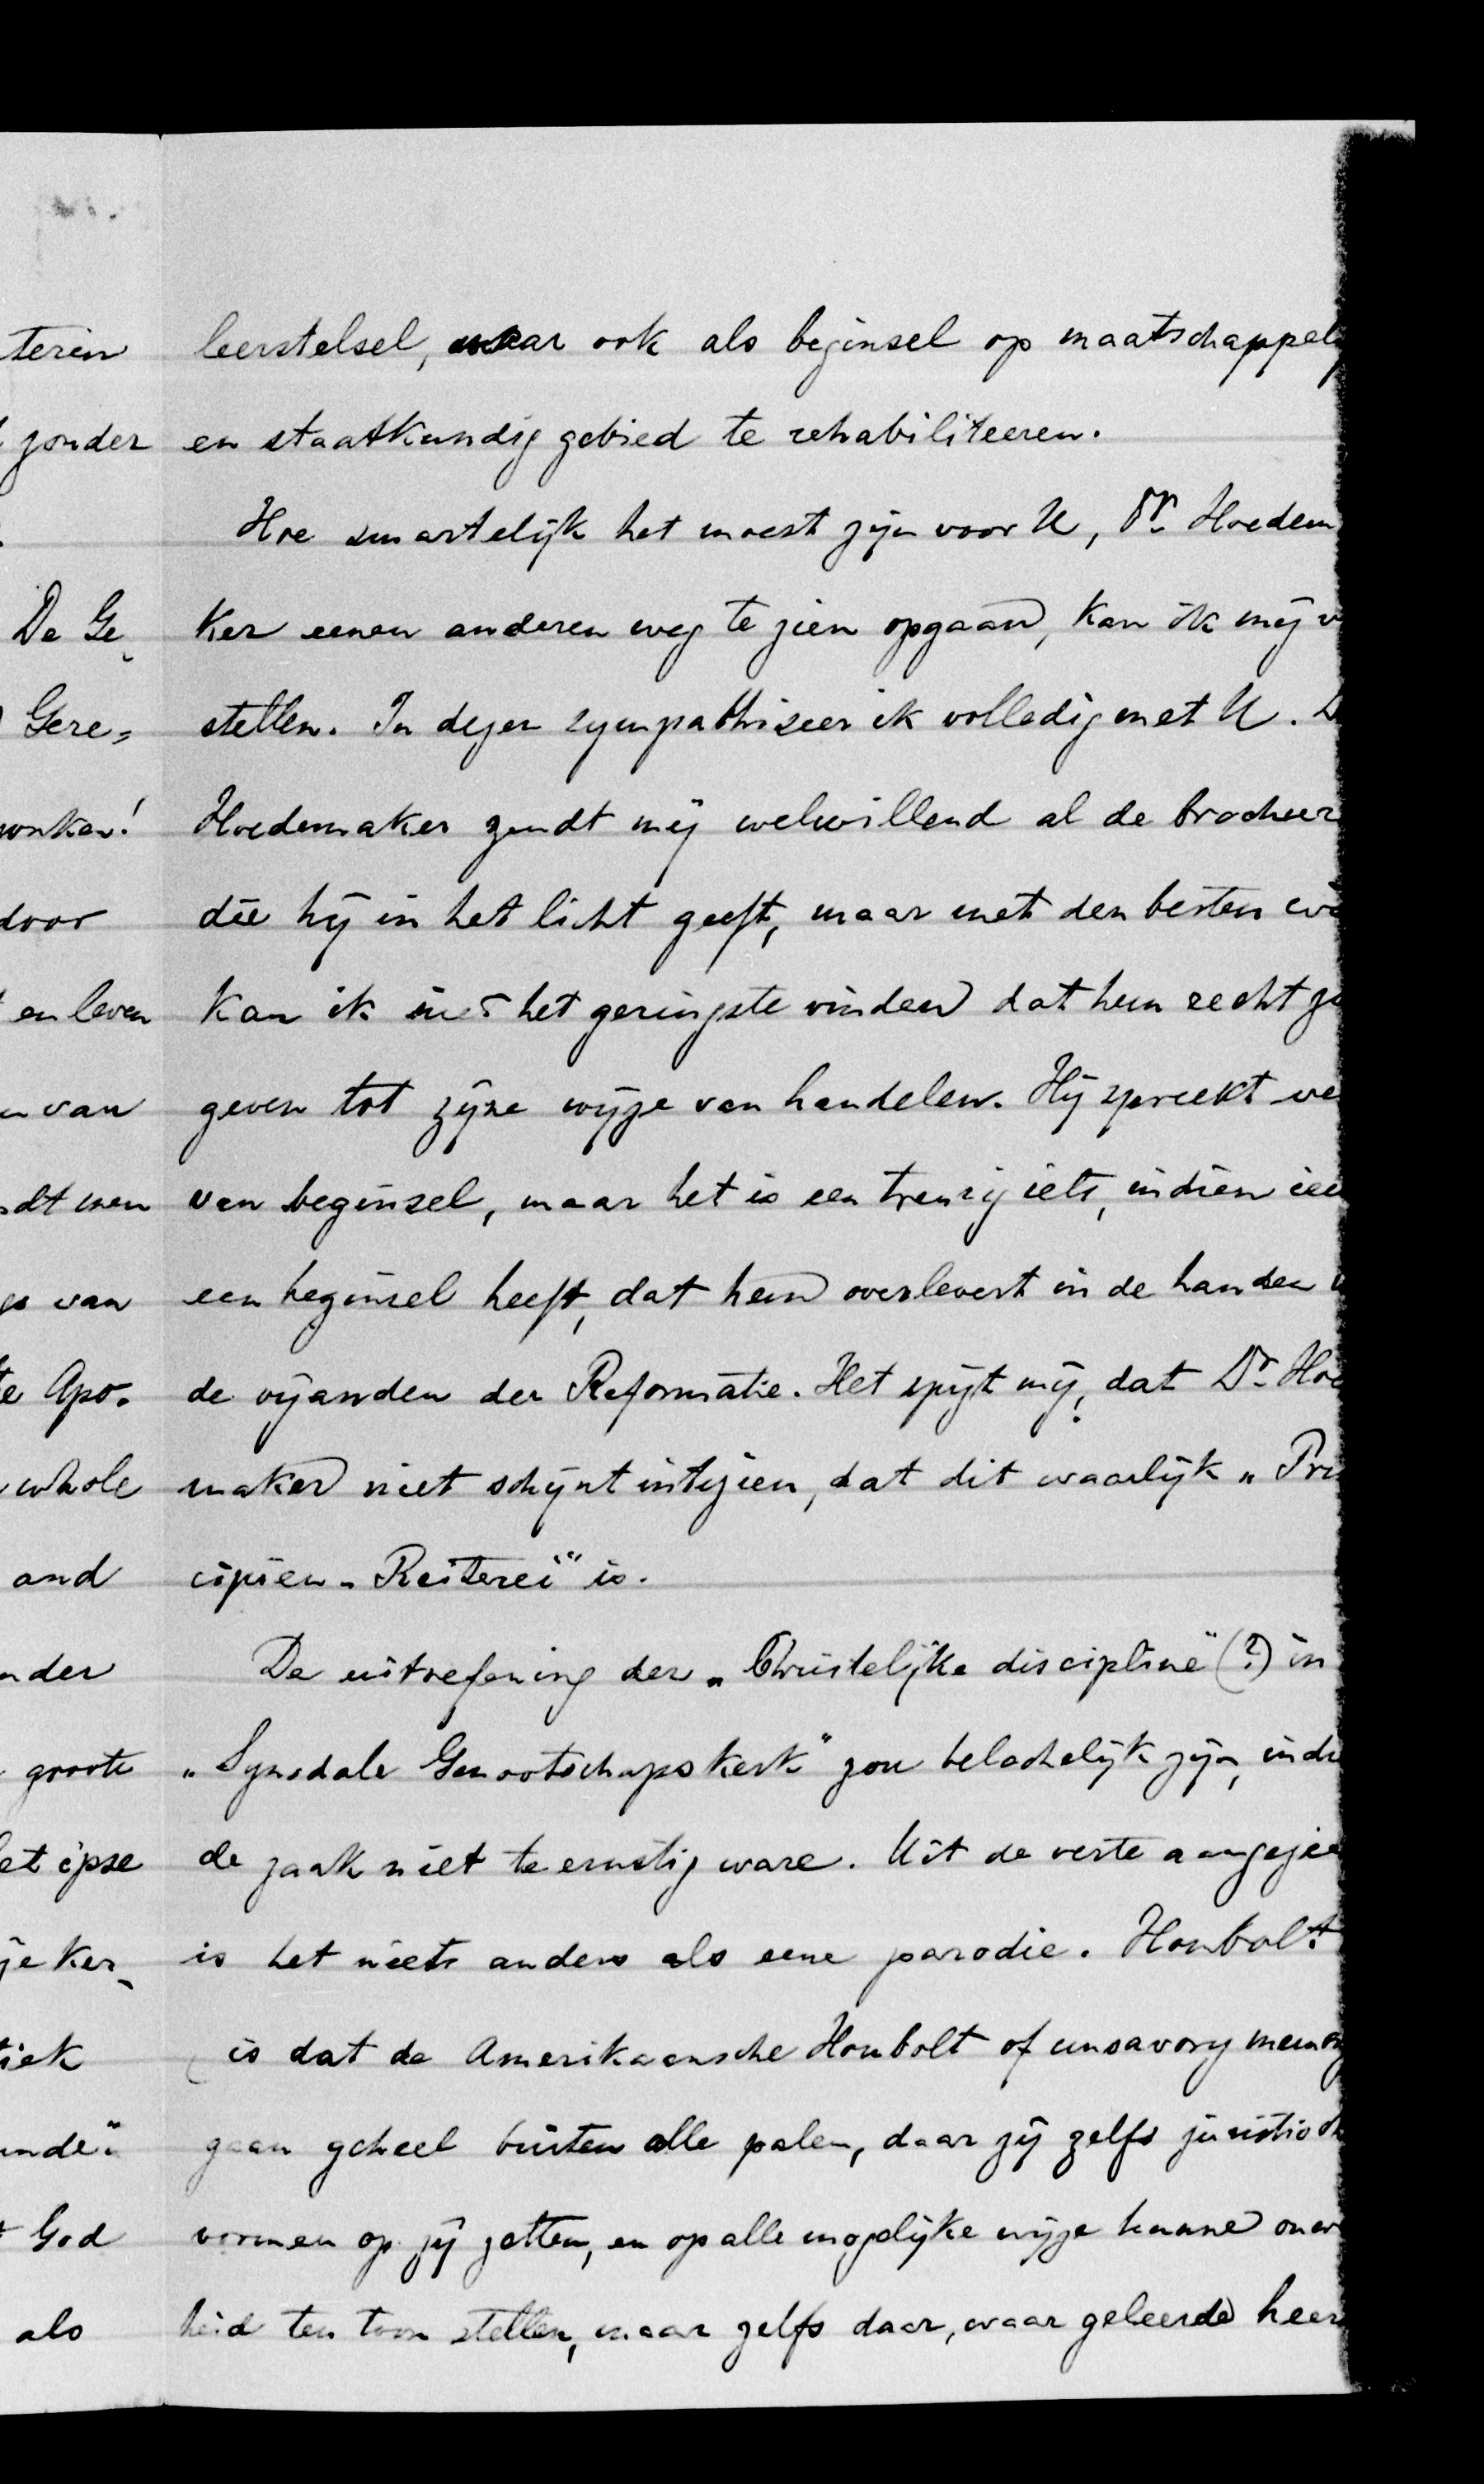 leerstelsel, maar ook als beginsel op maatschappel
en staatkundig gebied te rehabiliteeren.
Hoe smartelijk het moest zijn voor U, Dr. Hoedem
ker eenen anderen weg te zien opgaan, kan ik mij v
stellen. In dezen sympathiseer ik volledig met U. D
Hoedemaker zendt mij welwillend al de brochur
die hij in het licht geeft, maar met den besten wi
kan ik niet het geringste vinden dat hem recht zo
geven tot zijne wijze van handelen. Hij spreekt we
van beginsel, maar het is een treurig iets, indien iem
een beginsel heeft, dat hem overlevert in de handen v
de vijanden der Reformatie. Het spijt mij, dat Dr. Hoe
maker niet schijnt intezien, dat dit waarlijk „Prin
cipien-Reiterei" is.
De uitoefening der „Christelijke discipline" (?) in
„Synodale Genootschapskerk" zou belachelijk zijn, indi
de zaak niet te ernstig ware. Uit de verte aangezie
is het niets anders als eene parodie. Houbolt
(is dat de Amerikaansche Houbolt of unsavory memory
gaan geheel buiten alle palen, daar zij zelfs juristisch
vormen op zij zetten, en op alle mogelijke wijze hunne onw
heid ten toon stellen, maar zelfs daar, waar geleerde heer
terin
zonder
De Ge
Gere=
door
en leven
van
men
van
Apo.
whole
and
nder
groote
et ipse
zeker
tiek
unde"
God
als